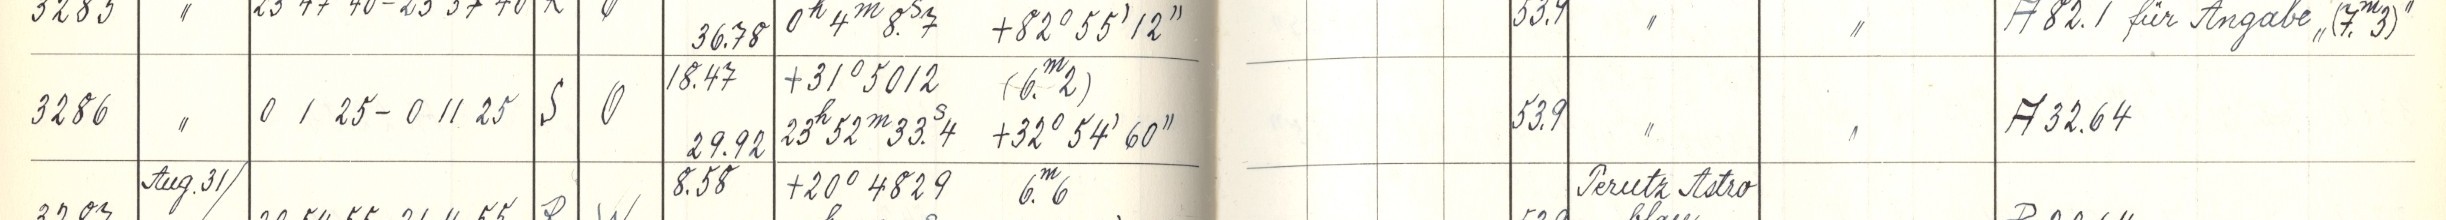 3285 " 23 47 40 - 23 57 40 R O 36.78 0ʰ 4ᵐ 8.ˢ7 +82° 55' 12" 53.9 " " A 82.1 für Angabe „(7.ᵐ3)"
18.47 +31° 5012 (6.ᵐ2)
3286 " 0 1 25 - 0 11 25 S O 53.9 " " A 32.64
29.92 23ʰ 52ᵐ 33.ˢ4 +32° 54' 60"
Aug. 31/ 8.58 +20° 4829 6.ᵐ6 Perutz Astro
53.9